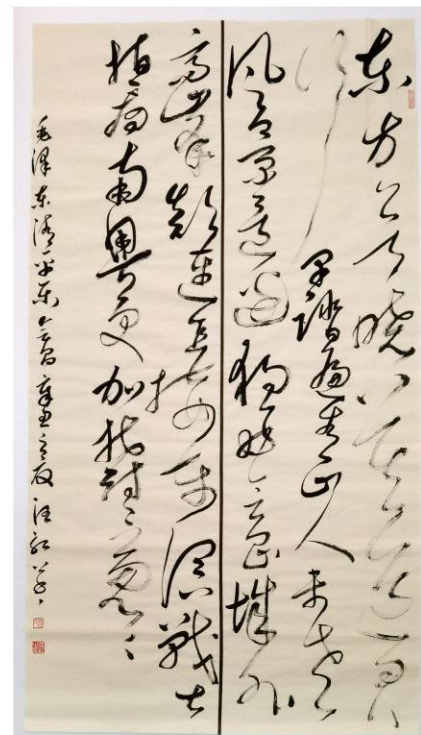 东方欲晓莫道君
行早踏遍青山人未老
风景这边独好会昌城外
高峰颠连直接东溟战士
指看南粤更加郁郁葱葱
毛泽东清平乐会昌辛丑 汪